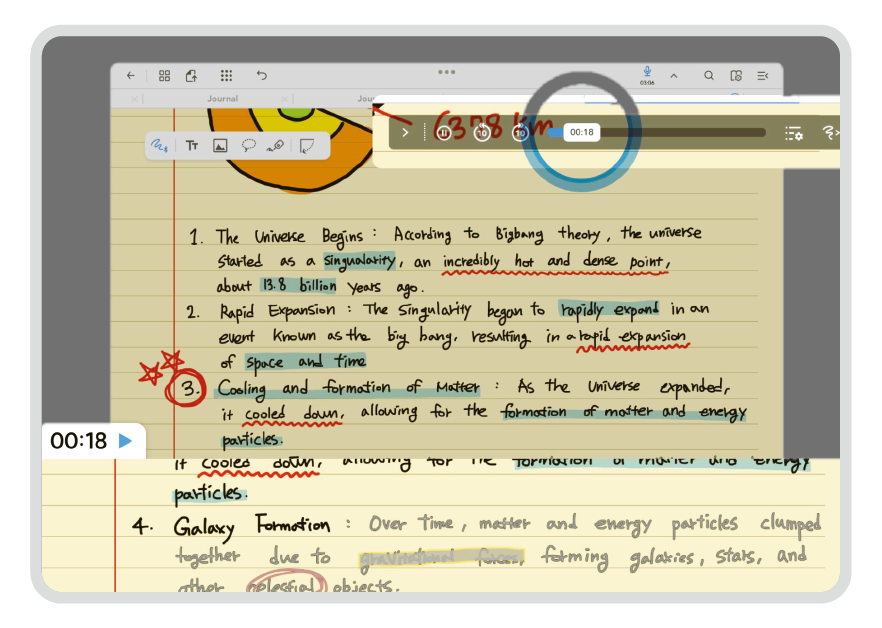 03:06
Journal
Jour
6378 km
10 10 00:18
1. The Universe Begins : According to Bigbang theory, the universe
started as a singualarity, an incredibly hot and dense point,
about 13.8 billion years ago.
2. Rapid Expansion : The singularity began to rapidly expand in an
event known as the big bang, resulting in a rapid expansion
of space and time
3. Cooling and formation of Matter : As the Universe expanded,
it cooled down, allowing for the formation of matter and energy
particles.
00:18
it cooled down, allowing for the formation of matter and energy
particles.
4. Galaxy Formation : Over time, matter and energy particles clumped
together due to gravitational forces, forming galaxies, stars, and
other celestial objects.